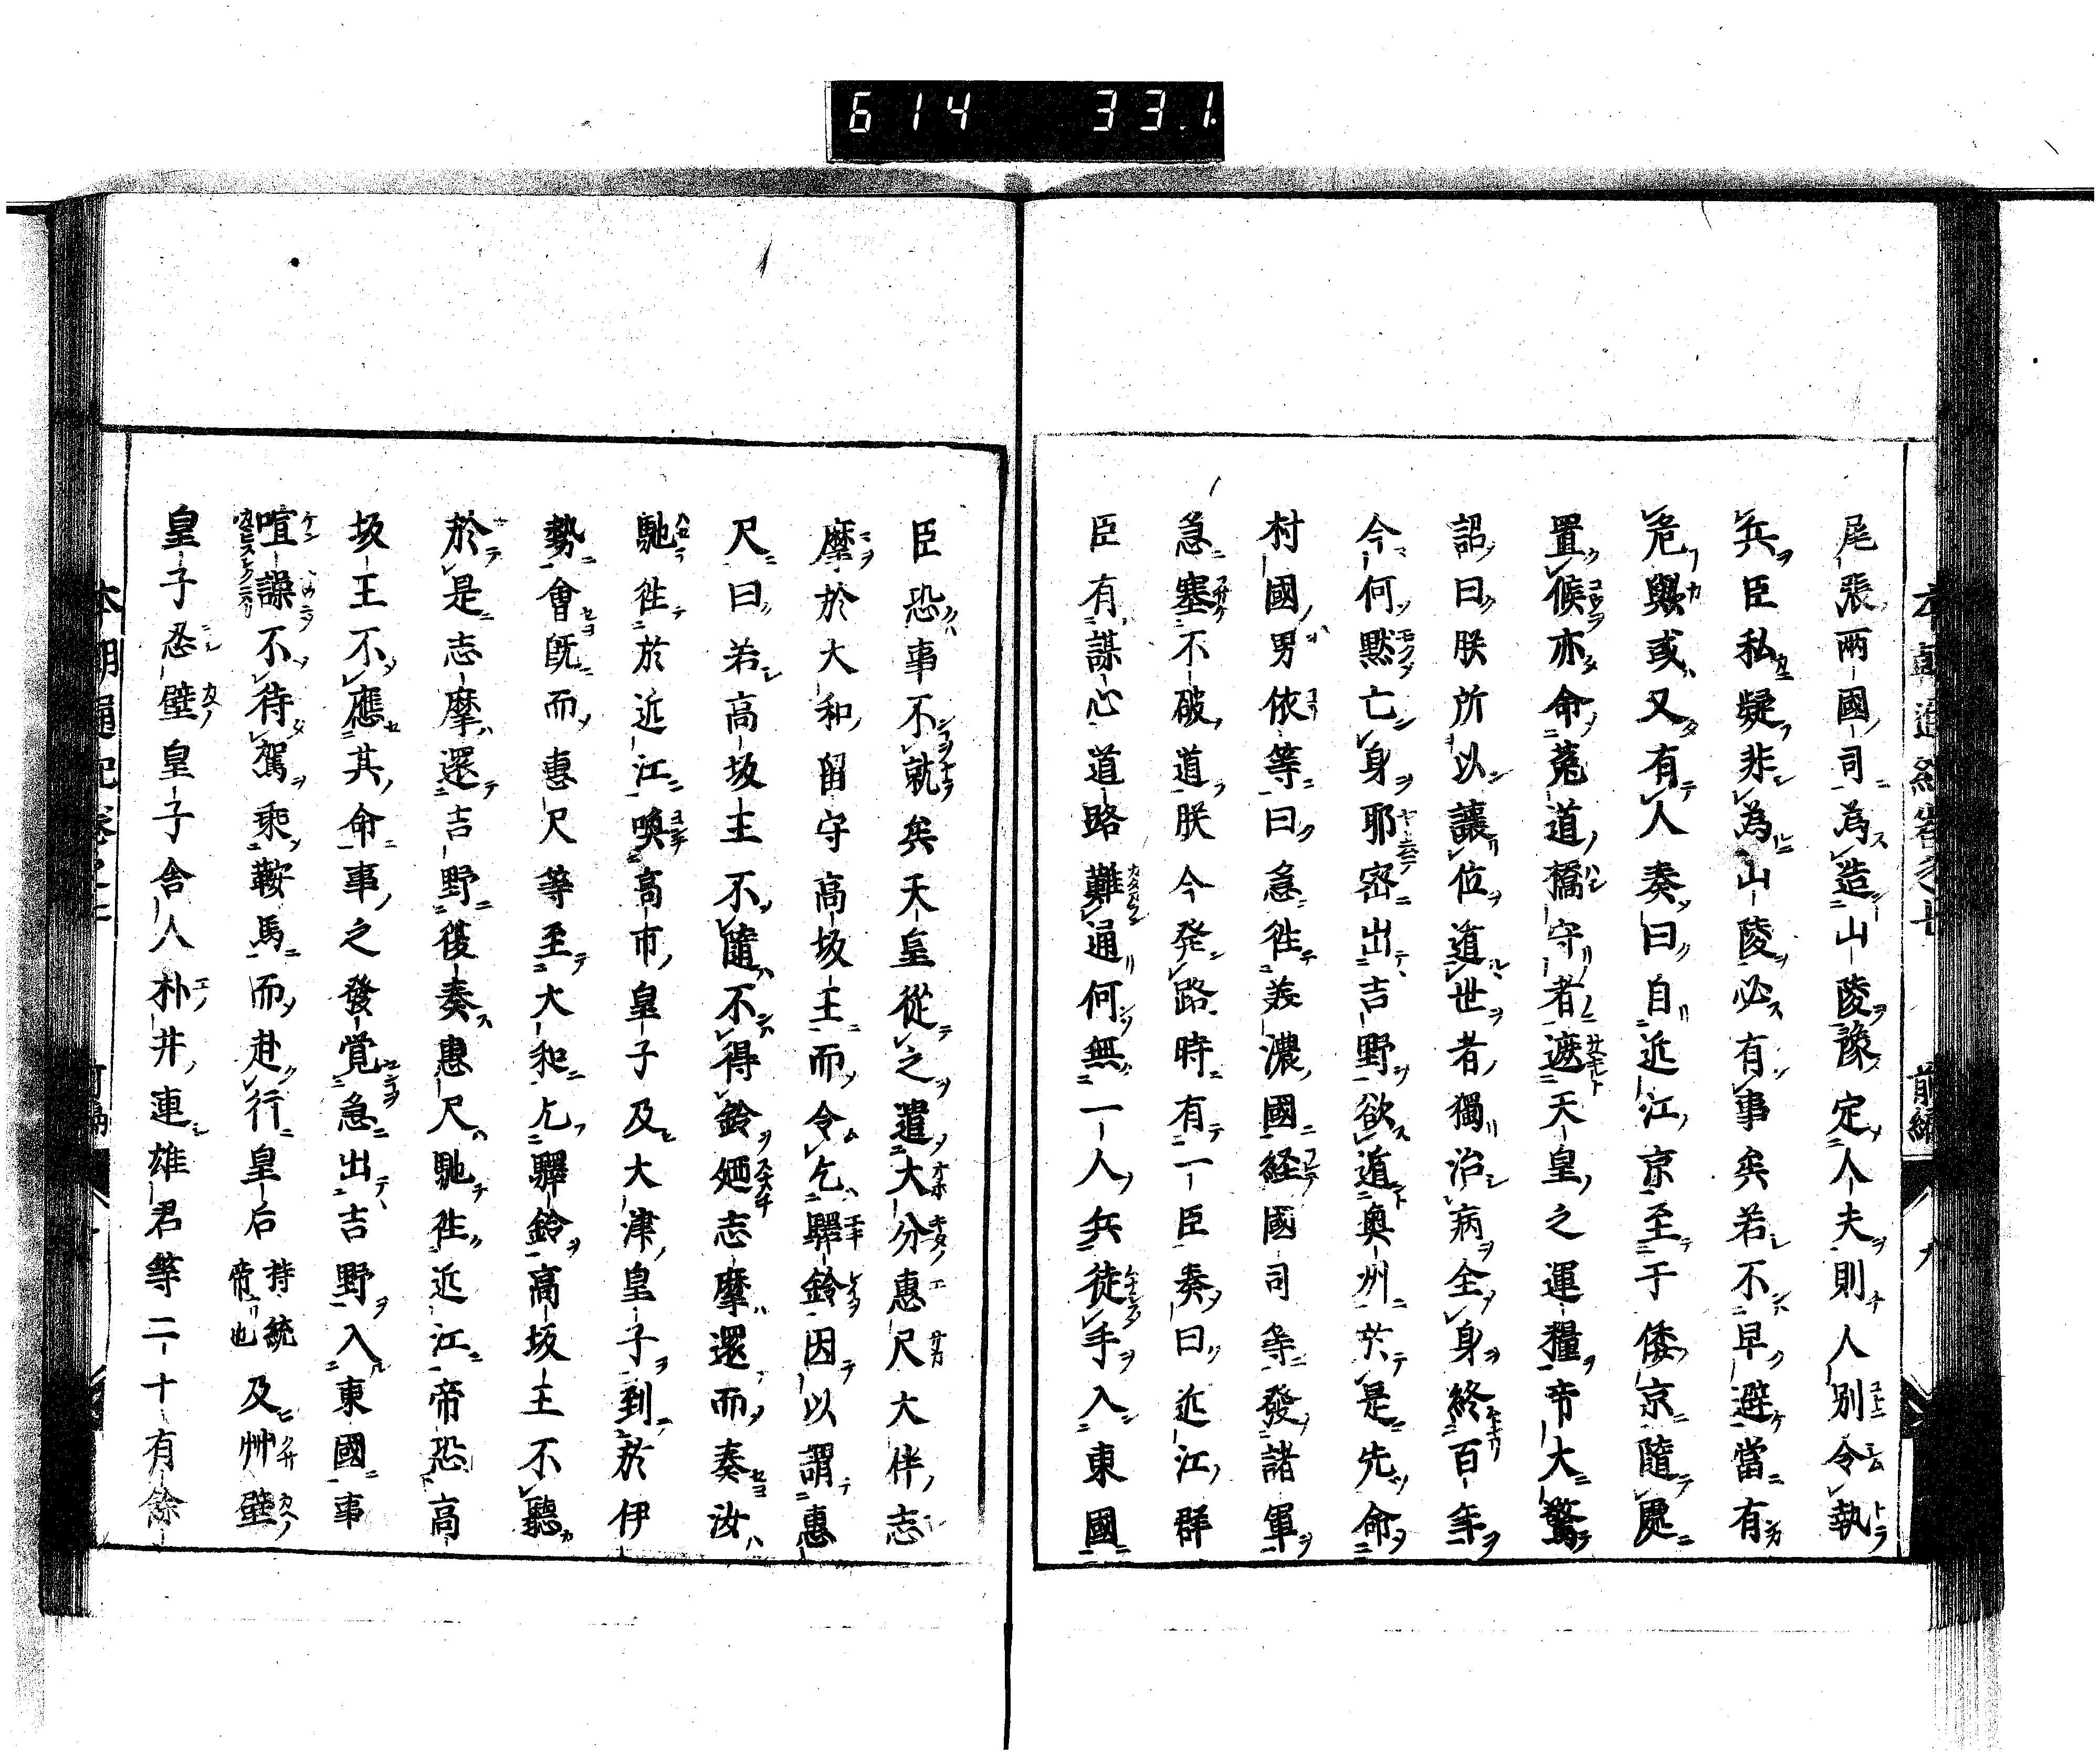 614 33.1.
尾張兩國司為造山陵豫定人夫則人別令執
兵臣私疑非為山陵必有事矣若不早避當有
危歟或又有人奏曰自近江京至于倭京隨處
置候亦命菟道橋守者遮天皇之運糧帝大驚
詔曰朕所以讓位遁世者獨治病全身終百年
今何黙亡身耶密出吉野欲遁奥州於是先命
村國男依等曰急徃美濃國経國司等發諸軍
急塞不破道朕今発路時有一臣奏曰近江群
臣有謀心道路難通何無一人兵徒手入東國
臣恐事不就矣天皇從之遣大分惠尺大伴志
摩於大和留守高坂王而令乞驛鈴因以謂惠
尺曰若高坂王不隨不得鈴廼志摩還而奏汝
馳徃於近江喚高市皇子及大津皇子到於伊
勢會既而惠尺等至大和乞驛鈴高坂王不聽
於是志摩還吉野復奏惠尺馳徃近江帝恐高
坂王不應其命事之發覚急出吉野入東國事
喧譟不待駕乘鞍馬而赴行皇后持統帝也及艸壁
皇子忍壁皇子舎人朴井連雄君等二十有餘